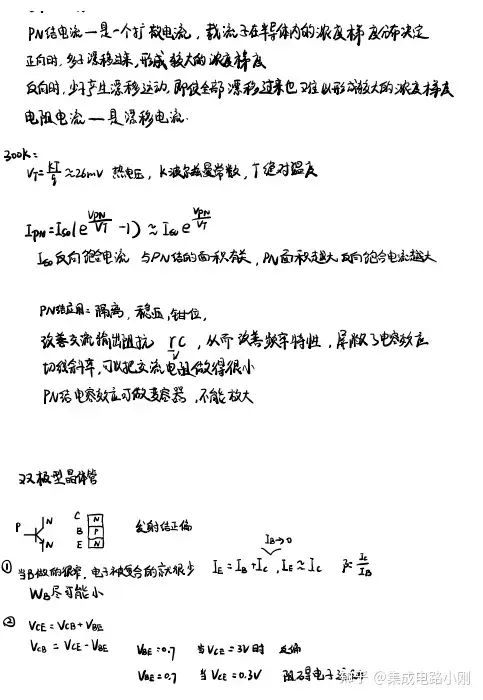 PN结电流一是一个扩散电流，载流子在半导体内的浓度梯度分布决定
正向时，多子漂移过来，形成较大的浓度梯度
反向时，少子产生漂移运动，即使全部漂移过来也难以形成较大的浓度梯度
电阻电流一是漂移电流.
300K:
V_T=kT/q≈26mV 热电压，k波尔兹曼常数，T绝对温度
I_PN=I_so(e^(V_PN/V_T) -1) ≈ I_so e^(V_PN/V_T)
I_so反向饱合电流 与PN结的面积有关，PN面积越大反向饱合电流越大
PN结应用：隔离，稳压，钳位，
改善交流输出阻抗 rc，从而改善频率特性，屏蔽了电容效应
切线斜率，可以把交流电阻做得很小
PN结电容效应可做变容器，不能放大
双极型晶体管
P N N
C N
B P
E N
发射结正偏
I_B→0
① 当B做的很窄，电子被复合的就很少 I_E = I_B + I_C , I_E ≈ I_C β=I_C/I_B
W_B尽可能小
② V_CE = V_CB + V_BE
V_CB = V_CE - V_BE V_BE=0.7 当V_CE=3V时 反偏
V_BE=0.7 当V_CE=0.3V 阻碍电子
知乎 @集成电路小刚